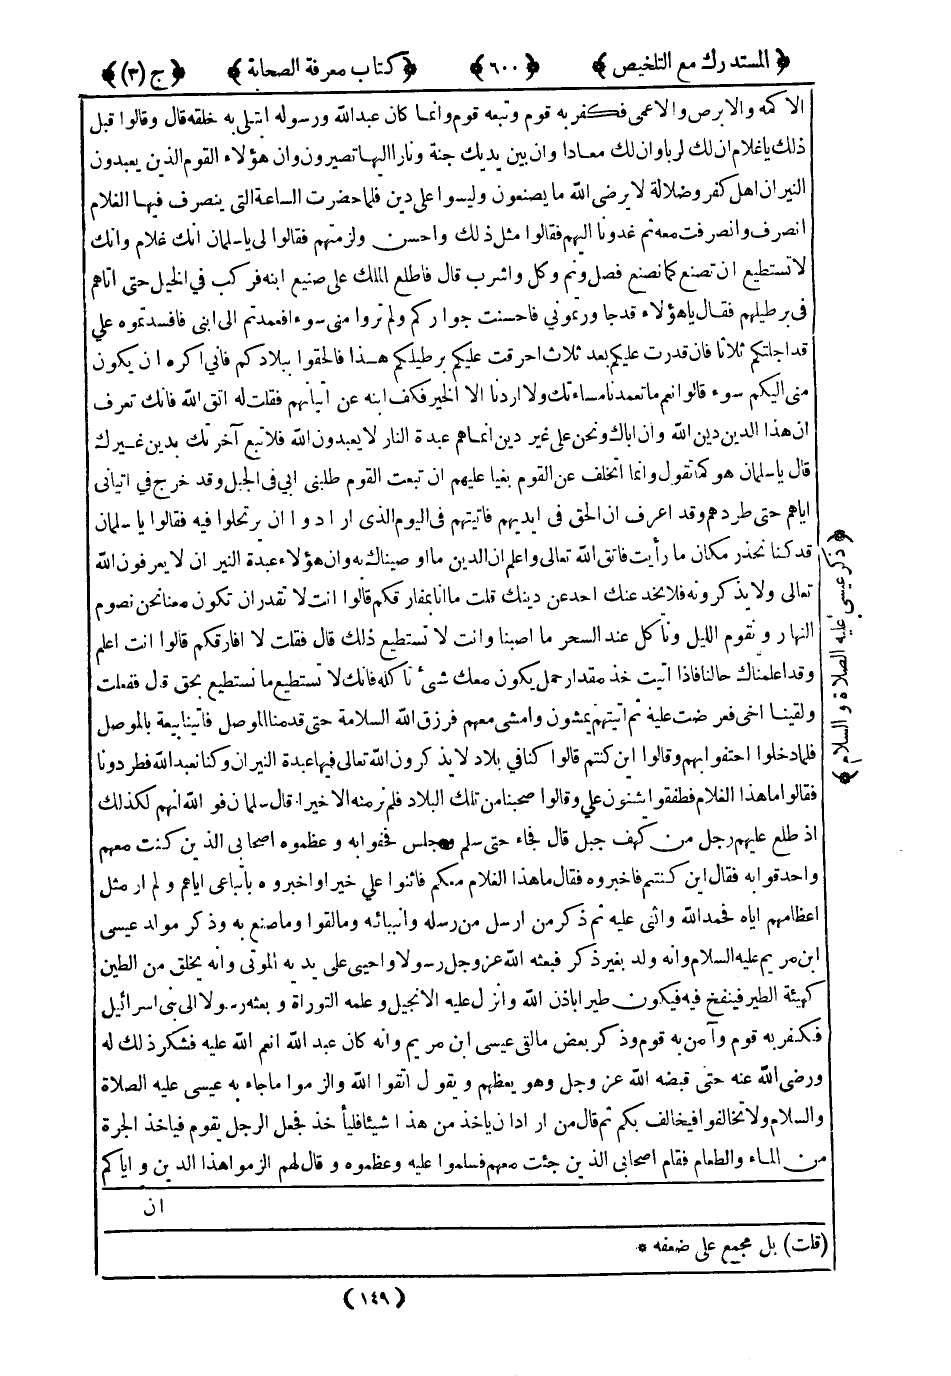 ﴿ المستدرك مع التلخيص ﴾ ﴿ ٦٠٠ ﴾ ﴿ كتاب معرفة الصحابة ﴾ ﴿ ج (٣) ﴾
الاكمه والابرص والاعمى فكفر به قوم وتبعه قوم وانما كان عبد الله ورسوله ابتلى به خلقه قال وقالوا قبل
ذلك يا غلام ان لك لربا وان لك معادا وان بين يديك جنة ونارا اليها تصيرون وان هؤلاء القوم الذين يعبدون
النيران اهل كفر وضلالة لا يرضى الله ما يصنعون وليسوا على دين فلما حضرت الساعة التى ينصرف فيها الغلام
انصرف وانصرفت معه ثم غدونا اليهم فقالوا مثل ذلك واحسن ولزمتهم فقالوا لى يا سلمان انك غلام وانك
لا تستطيع ان تصنع كما نصنع فصل ونم وكل واشرب قال فاطلع الملك على صنيع ابنه فركب في الخيل حتى اتاهم
فى برطيلهم فقال يا هؤلاء قد جاورتموني فاحسنت جواركم ولم تروا منى سوءا فعمدتم الى ابنى فافسدتموه علي
قد اجلتكم ثلاثا فان قدرت عليكم بعد ثلاث احرقت عليكم برطيلكم هذا فالحقوا ببلادكم فانى اكره ان يكون
منى اليكم سوء قالوا نعم ما تعمدنا مساءتك ولا اردنا الا الخير فكف ابنه عن اتيانهم فقلت له اتق الله فانك تعرف
ان هذا الدين دين الله وان اباك ونحن على غير دين انما هم عبدة النار لا يعبدون الله فلا تبع آخرتك بدين غيرك
قال يا سلمان هو كما تقول وانما اتخلف عن القوم بغيا عليهم ان تبعت القوم طلبنى ابي فى الجبل وقد خرج في اتيانى
اياهم حتى طردهم وقد اعرف ان الحق فى ايديهم فاتيتهم فى اليوم الذى ارادوا ان يرتحلوا فيه فقالوا يا سلمان
قد كنا نحذر مكان ما رأيت فاتق الله تعالى واعلم ان الدين ما اوصيناك به وان هؤلاء عبدة النيران لا يعرفون الله
تعالى ولا يذكرونه فلا يخدعنك احد عن دينك قلت ما انا بمفارقكم قالوا انت لا تقدر ان تكون معنا نحن نصوم
النهار ونقوم الليل ونأكل عند السحر ما اصبنا وانت لا تستطيع ذلك قال فقلت لا افارقكم قالوا انت اعلم
وقد اعلمناك حالنا فاذا اتيت خذ مقدار حمل يكون معك شئ تأكله فانك لا تستطيع ما نستطيع بحق قال ففعلت
ولقينا اخى فعرضت عليه ثم اتيتهم يمشون وامشى معهم فرزق الله السلامة حتى قدمنا الموصل فاتينا بيعة بالموصل
فلما دخلوا احتفوا بهم وقالوا اين كنتم قالوا كنا في بلاد لا يذكرون الله تعالى فيها عبدة النيران وكنا نعبد الله فطردونا
فقالوا ما هذا الغلام فطفقوا يثنون علي وقالوا صحبنا من تلك البلاد فلم نر منه الا خيرا قال سلمان فو الله انهم لكذلك
اذ طلع عليهم رجل من كهف جبل قال فجاء حتى سلم وجلس فحفوا به وعظموه اصحابى الذين كنت معهم
واحدقوا به فقال اين كنتم فاخبروه فقال ما هذا الغلام معكم فاثنوا علي خيرا واخبروه باتباعى اياهم ولم ار مثل
اعظامهم اياه فحمد الله واثنى عليه ثم ذكر من ارسل من رسله وانبيائه وما لقوا وما صنع به وذكر مولد عيسى
ابن مريم عليه السلام وانه ولد بغير ذكر فبعثه الله عز وجل رسولا واحيى على يديه الموتى وانه يخلق من الطين
كهيئة الطير فينفخ فيه فيكون طيرا باذن الله وانزل عليه الانجيل وعلمه التوراة وبعثه رسولا الى بنى اسرائيل
فكفر به قوم وآمن به قوم وذكر بعض ما لقى عيسى ابن مريم وانه كان عبد الله انعم الله عليه فشكر ذلك له
ورضى الله عنه حتى قبضه الله عز وجل وهو يعظهم ويقول اتقوا الله والزموا ما جاء به عيسى عليه الصلاة
والسلام ولا تخالفوا فيخالف بكم ثم قال من اراد ان ياخذ من هذا شيئا فليأخذ فجعل الرجل يقوم فياخذ الجرة
من الماء والطعام فقام اصحابى الذين جئت معهم فسلموا عليه وعظموه وقال لهم الزموا هذا الدين واياكم
ان
﴿ ذكر عيسى عليه الصلاة والسلام ﴾
(قلت) بل مجمع على ضعفه *
(١٤٩)